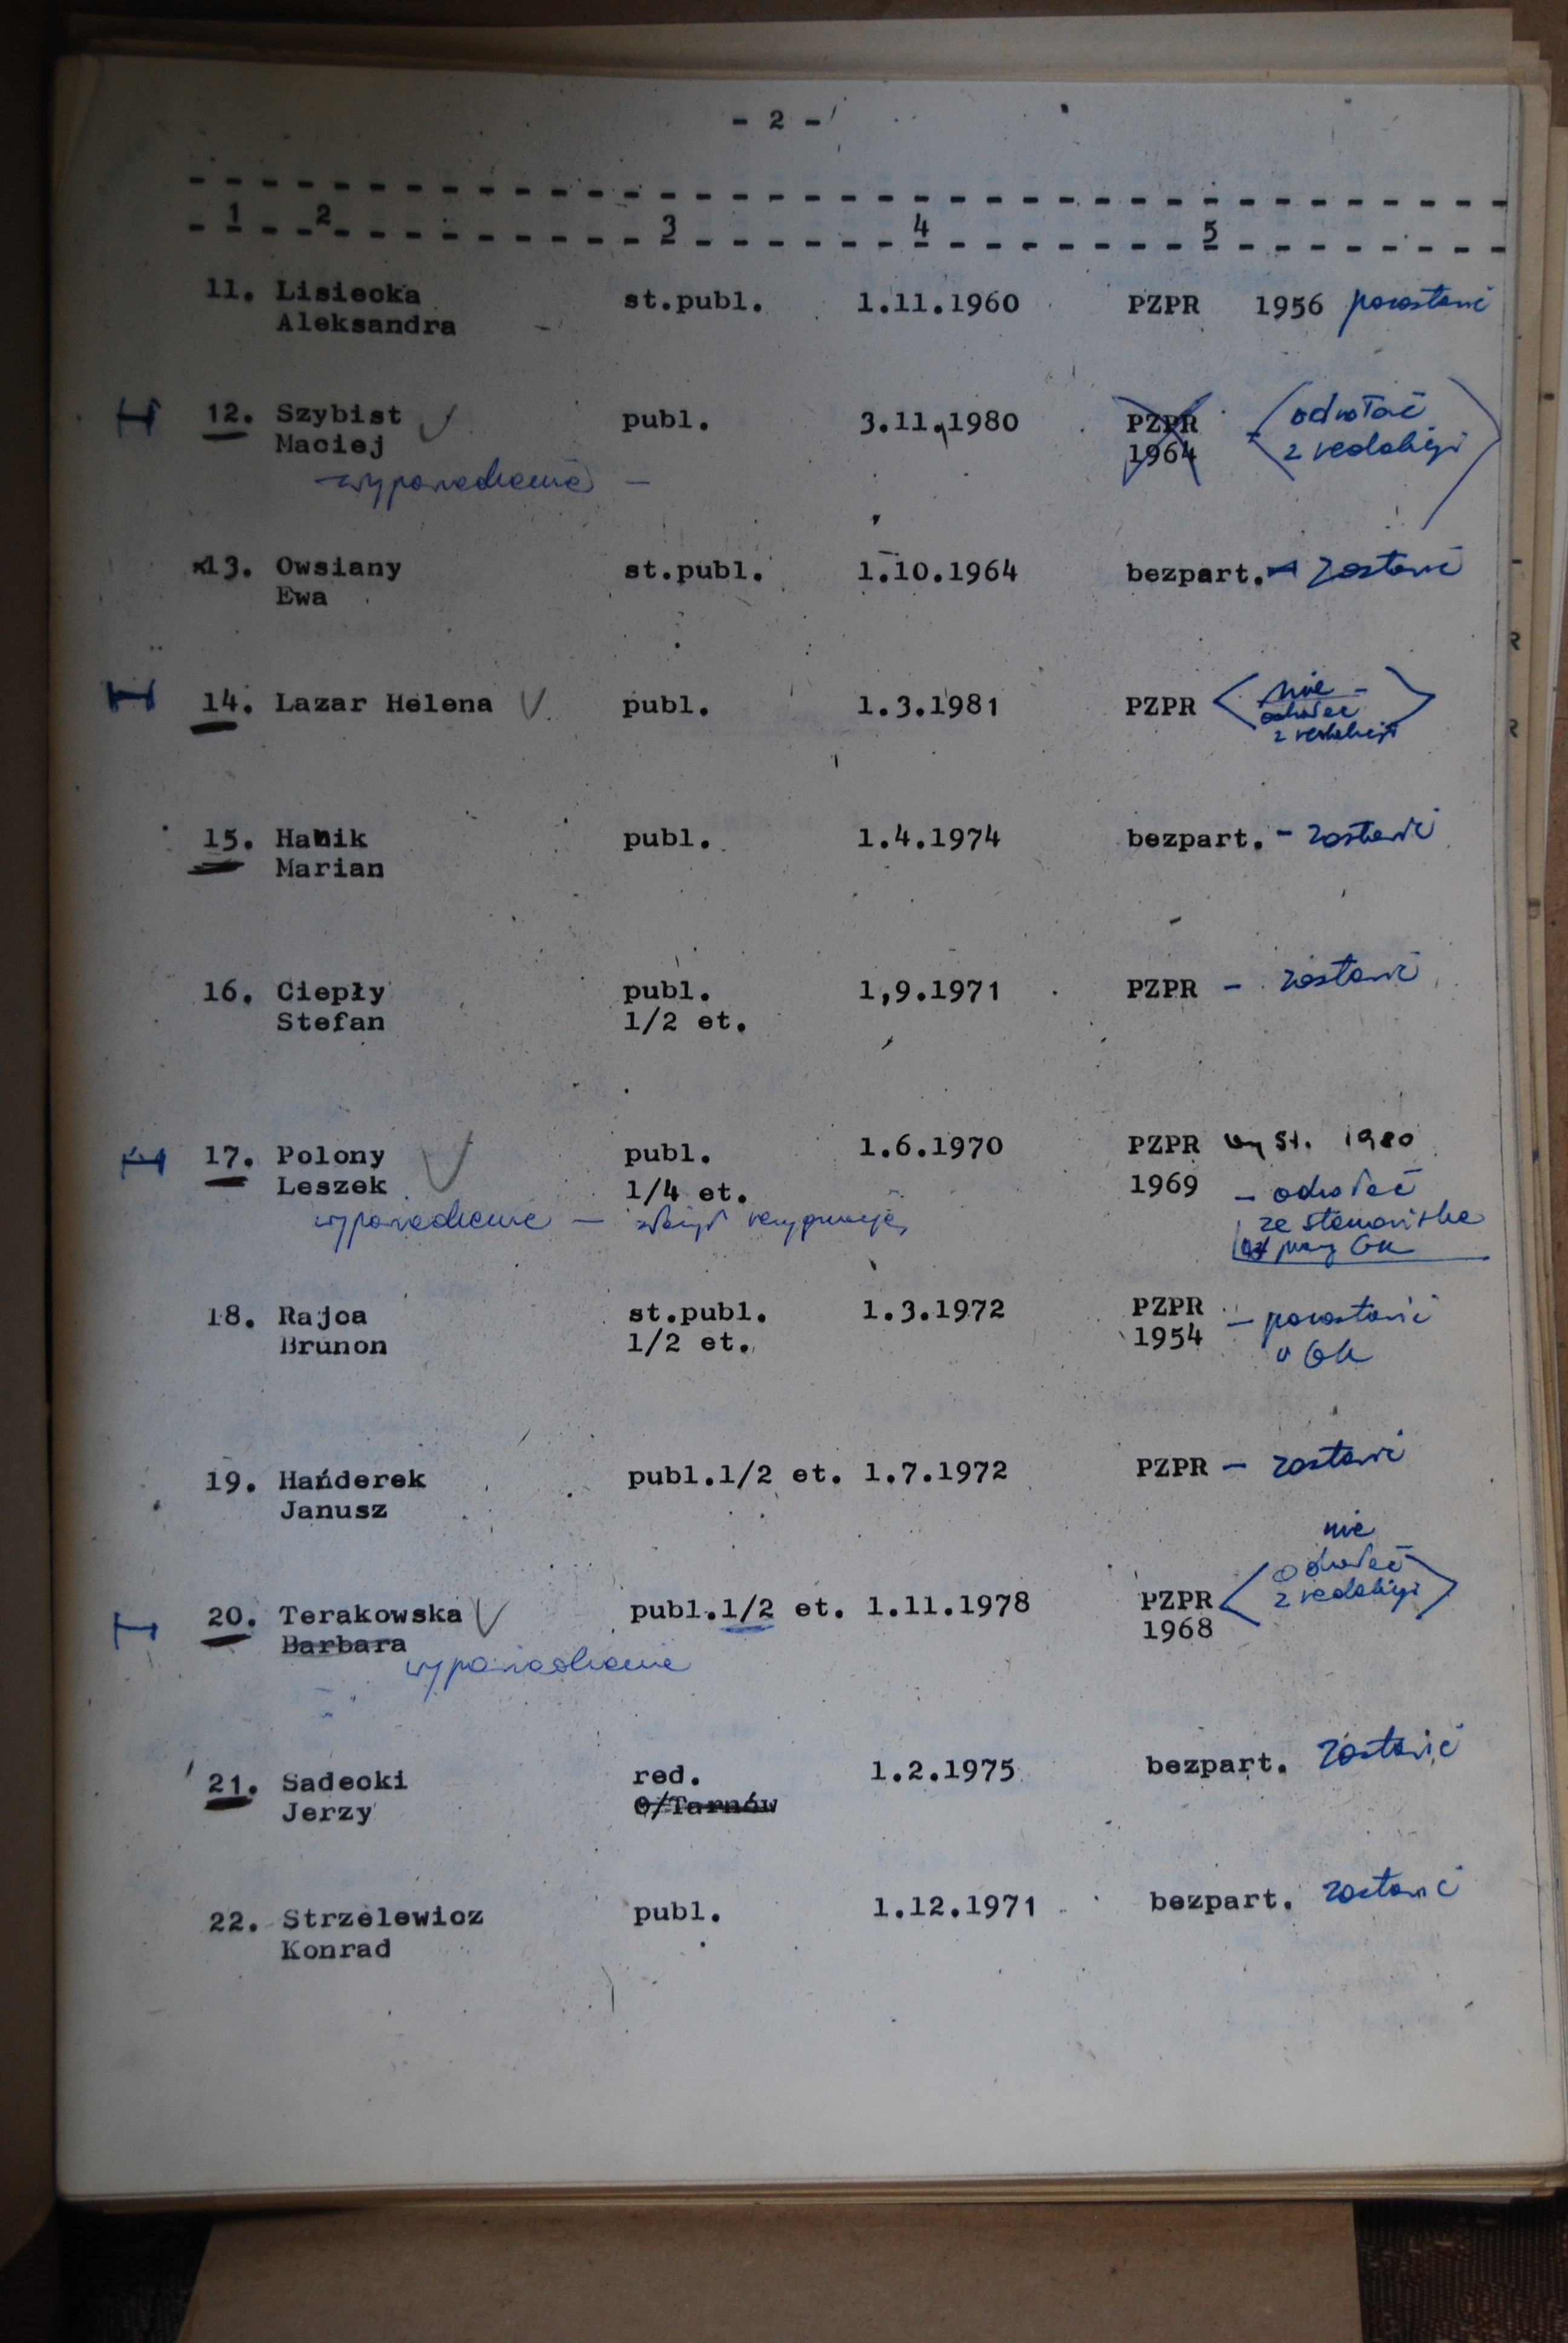 - 2 -
1 2 3 4 5
11. Lisiecka st.publ. 1.11.1960 PZPR 1956 pozostawić
Aleksandra
12. Szybist publ. 3.11.1980 PZPR - odwołać
Maciej 1964 z redakcji
wypowiedzenie -
13. Owsiany st.publ. 1.10.1964 bezpart. - zostawić
Ewa
14. Lazar Helena publ. 1.3.1981 PZPR nie -
odwołać
z redakcji
15. Hanik publ. 1.4.1974 bezpart. - zostawić
Marian
16. Ciepły publ. 1,9.1971 PZPR - zostawić
Stefan 1/2 et.
17. Polony publ. 1.6.1970 PZPR wyst. 1980
Leszek 1/4 et. 1969 - odwołać
wypowiedzenie - złożył rezygnację, ze stanowiska
przy GK
18. Rajca st.publ. 1.3.1972 PZPR - pozostawić
Brunon 1/2 et. 1954 w GK
19. Hańderek publ.1/2 et. 1.7.1972 PZPR - zostawić
Janusz
nie
odwołać
20. Terakowska publ.1/2 et. 1.11.1978 PZPR z redakcji
Barbara 1968
wypowiedzenie
21. Sadecki red. 1.2.1975 bezpart. zostawić
Jerzy O/Tarnów
22. Strzelewicz publ. 1.12.1971 bezpart. zostawić
Konrad